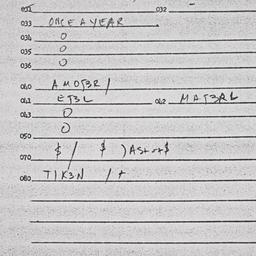 031 032
033 ONCE A YEAR
034 0
035 0
036 0
040 AMOT3R /
041 ET3L 042 MAT3RL
043 0
0
050
$ / $ ) ASt
070
080 TIK3N / t